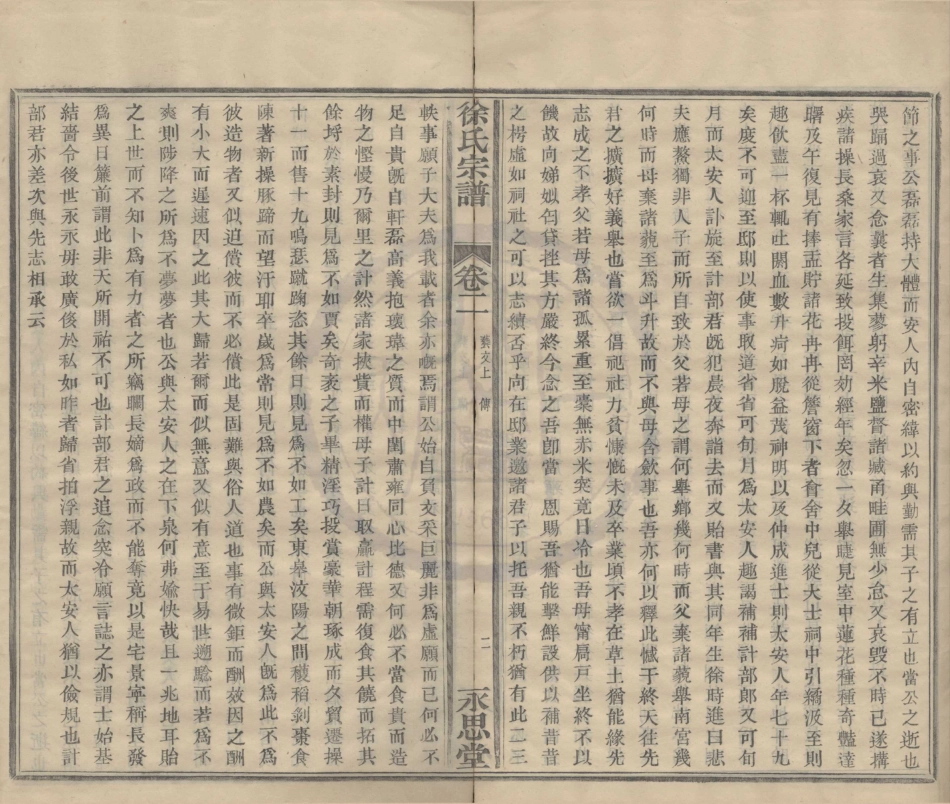 節之事公磊磊持大體而安人內自密緯以約與勤需其子之有立也當公之逝也
哭踊過哀又念糞者生集蓼躬辛米鹽督諸臧甬畦圃無少怠又哀毀不時已遂搆
疾諸操長桑家言各延致投餌罔効經年矣忽一夕舉睫見室中蓮花種種奇豔達
曙及午復見有捧盂貯諸花冉冉從簷窗下者會舍中兒從大士祠中引繘汲至則
趣飲盡一杯輒吐閼血數升疴如脫益茂神明以及仲成進士則太安人年七十九
矣度不可迎至邸則以使事取道省省可旬月爲太安人趣謁補補計部郎又可旬
月而太安人訃旋至計部君旣犯晨夜奔詣去而又貽書與其同年生徐時進曰悲
夫應鰲獨非人子而所自致於父若母之謂何舉鄉幾何時而父棄諸藐舉南宮幾
何時而母棄諸藐至爲斗升故而不與母含歛事也吾亦何以釋此憾于終天往先
君之擴擴好義舉也當欲一倡祀社力貧慷慨未及卒業頃不孝在草土猶能緣先
志成之不孝父若母爲諸孤累重至橐無赤米突竟日冷也吾母甯扃戸坐終不以
饑故向娣姒匄貸挫其方嚴終今念之吾卽當 恩賜吾猶能擊鮮設供以補昔昔
之枵虛如祠社之可以志續否乎向在邸業邀諸君子以托吾親不朽猶有此二三
徐氏宗譜 卷二 藝文上 傳 二 永思堂
軼事願子大夫爲我載者余亦嘅焉謂公始自頁文采巨麗非爲虛願而已何必不
足自貴旣自軒磊高義抱瓌瑋之質而中閨肅雍同心比德又何必不當食貴而造
物之慳慢乃爾里之計然諸家挾貲而權母子計日取贏計程需復食其饒而拓其
餘埒於素封則見爲不如賈矣奇袤之子畢精淫巧投賞豪華朝琢成而夕貿遷操
十一而售十九鳴瑟蹴踘恣其餘日則見爲不如工矣東皋汶陽之間穫稻剝棗食
陳著新操豚蹄而望汙耶卒歲爲當則見爲不如農矣而公與太安人旣爲此不爲
彼造物者又似迫償彼而不必償此是固難與俗人道也事有微鉅而酬效因之酬
有小大而遲速因之此其大歸若爾而似無意又似有意至于易世遡驗而若爲不
爽則陟降之所爲不夢夢者也公與太安人之在下泉何弗媮快哉且一兆地耳貽
之上世而不知卜爲有力者之所竊瞷長嫡爲政而不能奪竟以是宅景寧稱長發
爲異日簾前謂此非天所開祐不可也計部君之追念突冷願言誌之亦謂士始基
結嗇令後世永永毋敢廣侈於私如昨者歸省拍浮親故而太安人猶以儉規也計
部君亦差次與先志相承云